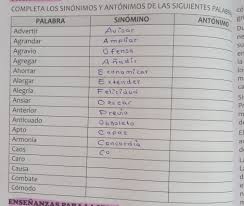 COMPLETA LOS SINÓNIMOS Y ANTÓNIMOS DE LAS SIGUIENTES PALABRAS
PALABRA SINÓNIMO ANTÓNIMO
Advertir Avisar
Agrandar Ampliar
Agravio Ofensa
Agregar Añadir
Ahorrar Economizar
Alargar Extender
Alegría Felicidad
Ansiar
Anterior Previo
Anticuado Obsoleto
Apto Capaz
Armonía Concordia
Caos Co
Caro
Causa
Combate
Cómodo
ENSEÑANZAS PARA LA